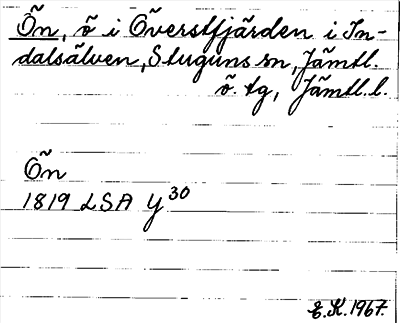 Ön, ö i Överstfjärden i In-
dalsälven, Stuguns sn, Jämtl.
ö. tg, Jämtl. l.
Ön
1819 LSA Y30
E.K. 1967.